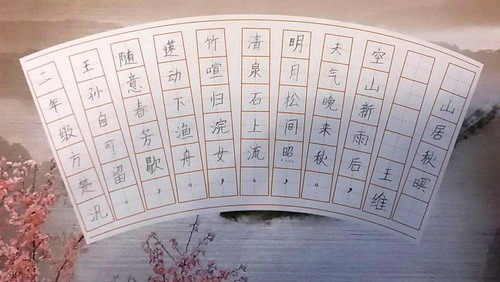 山居秋暝
王维
空山新雨后，
天气晚来秋。
明月松间照，
清泉石上流。
竹喧归浣女，
莲动下渔舟。
随意春芳歇，
王孙自可留。
二年级方楚汎